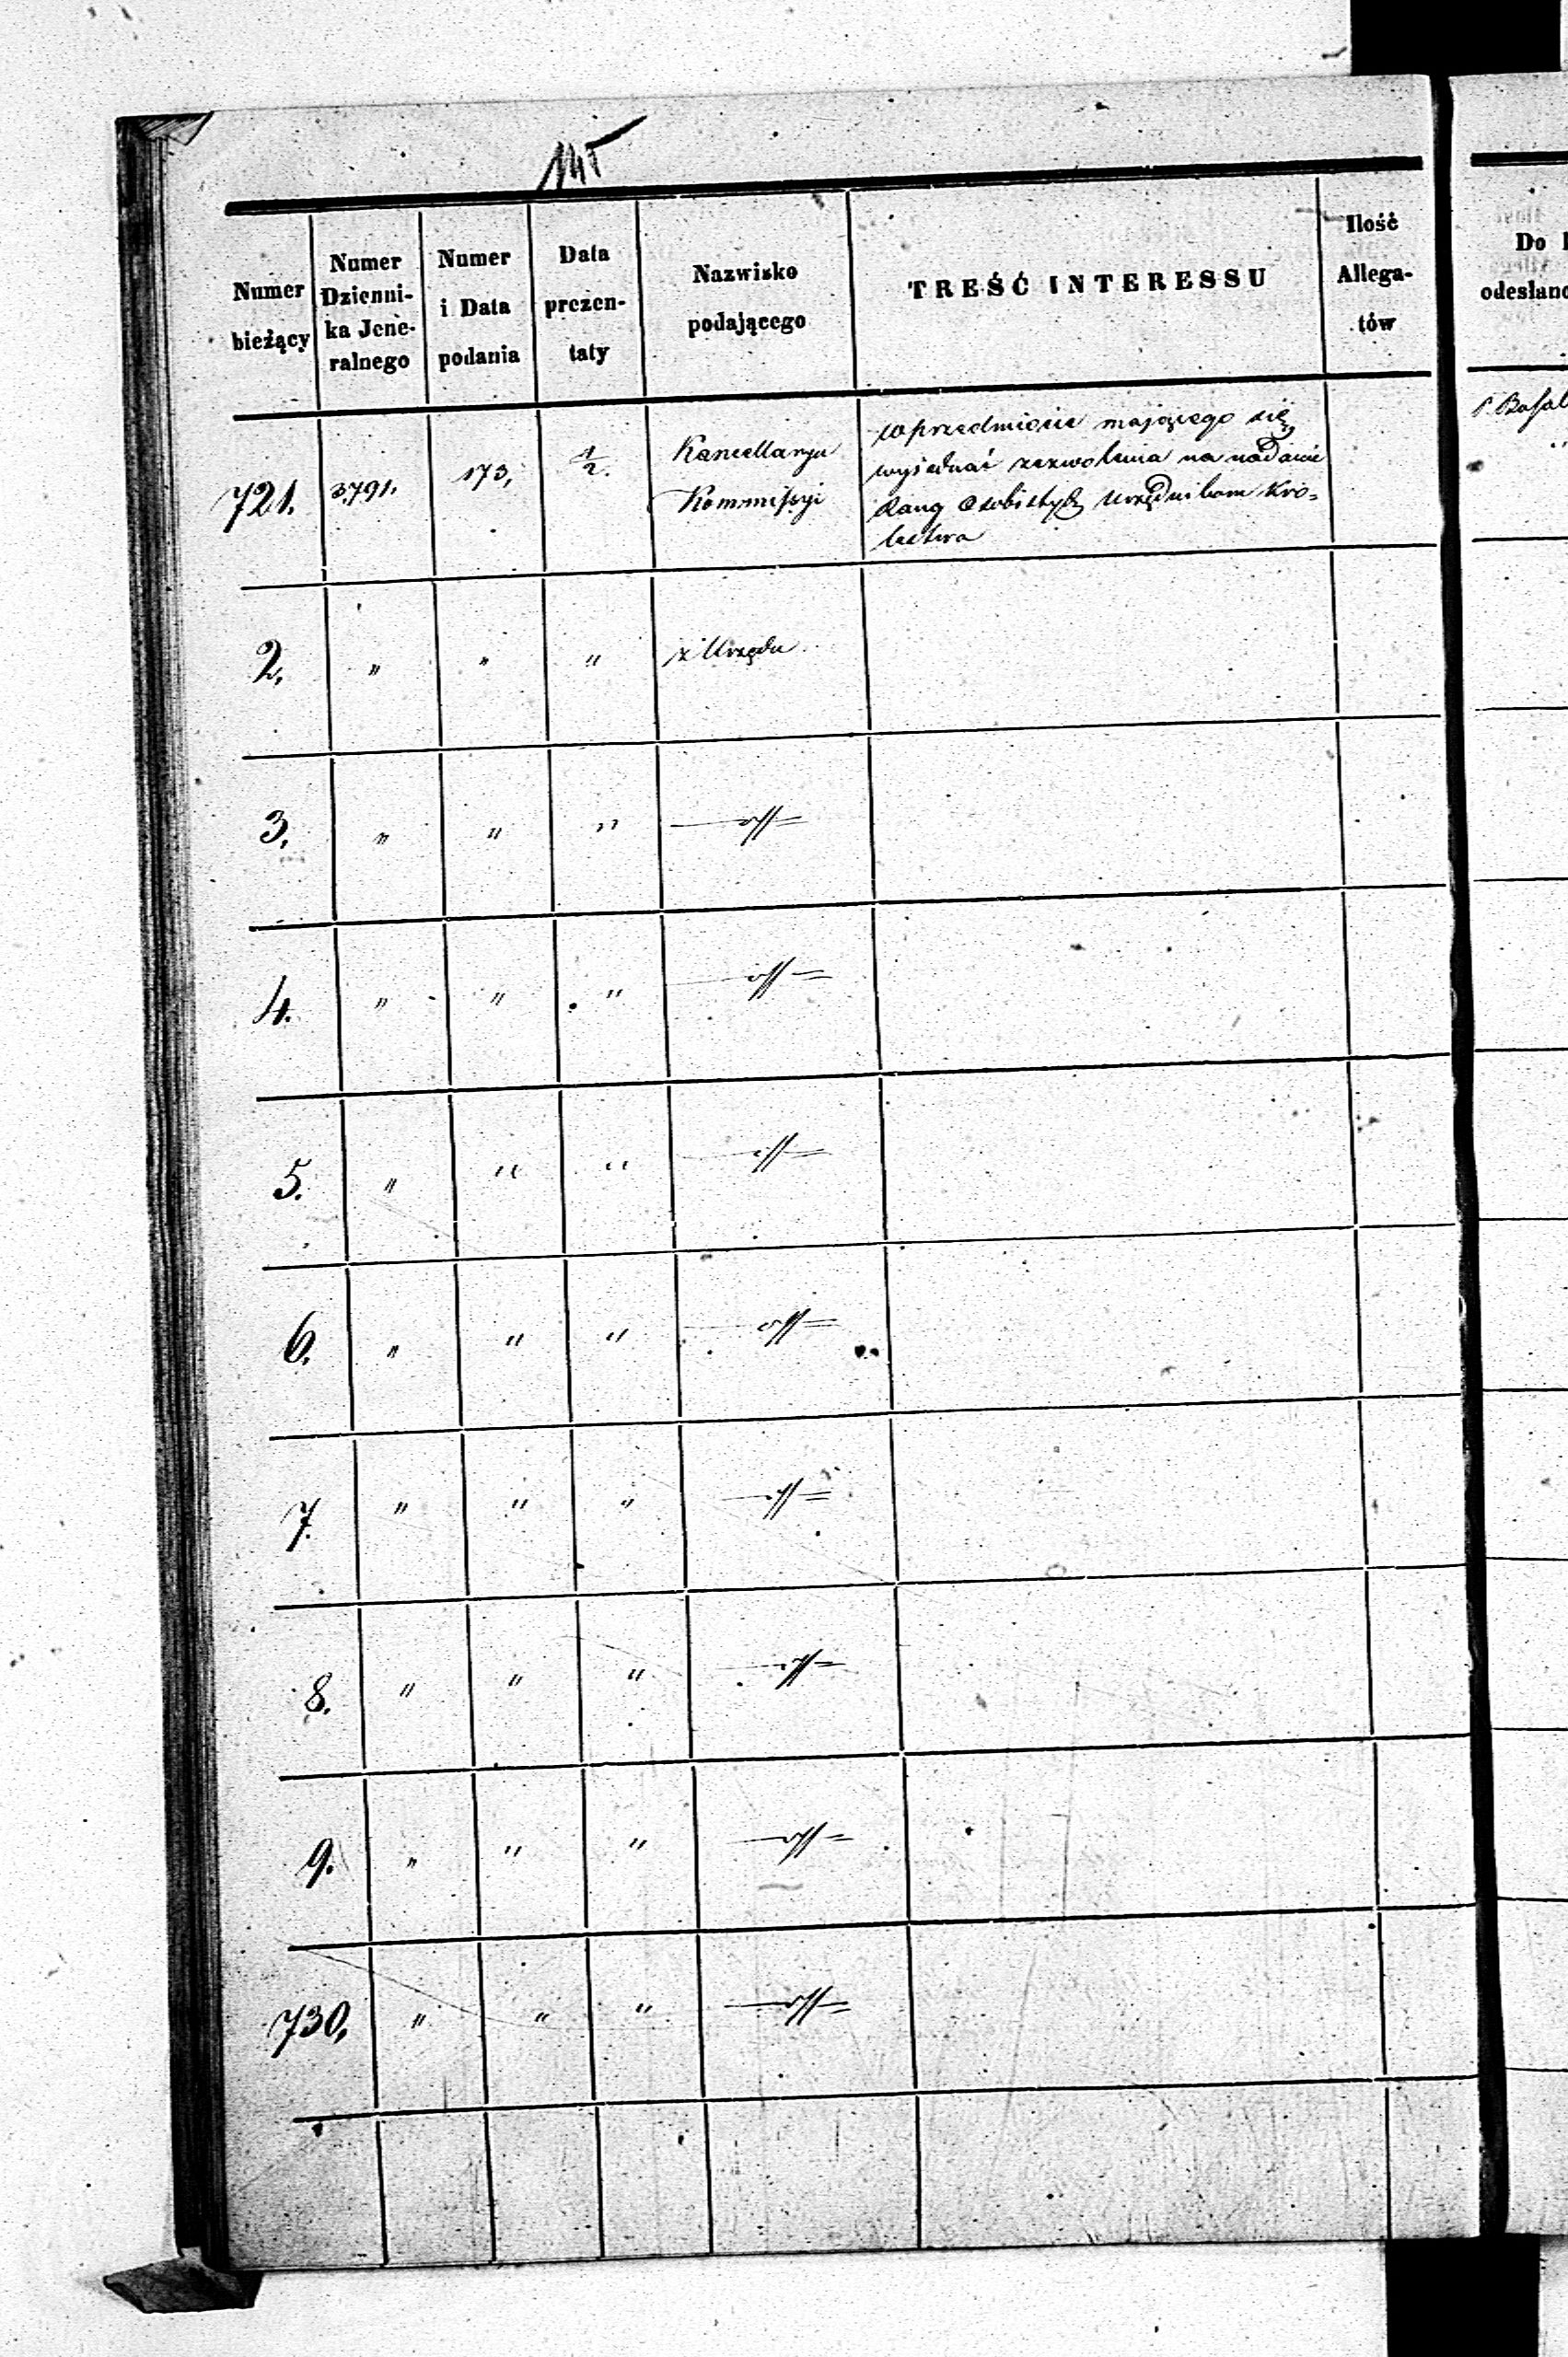 145
Numer bieżący | Numer Dzienni-ka Jene-ralnego | Numer i Data podania | Data prezen-taty | Nazwisko podającego | TREŚĆ INTERESSU | Ilość Allega-tów | Do odesłano
721. | 3,791. | 173, | 1/2. | Kancellarya Kommissyi | w przedmiocie mającego się
wyjednać zezwolenia na nadanie
rang osobistych Urzędnikom Kró=
lestwa
2, | " | " | " | z Urzędu
3, | " | " | "
4. | " | " | "
5. | " | " | "
6. | " | " | "
7. | " | " | "
8. | " | " | "
9. | " | " | "
730, | " | " | "